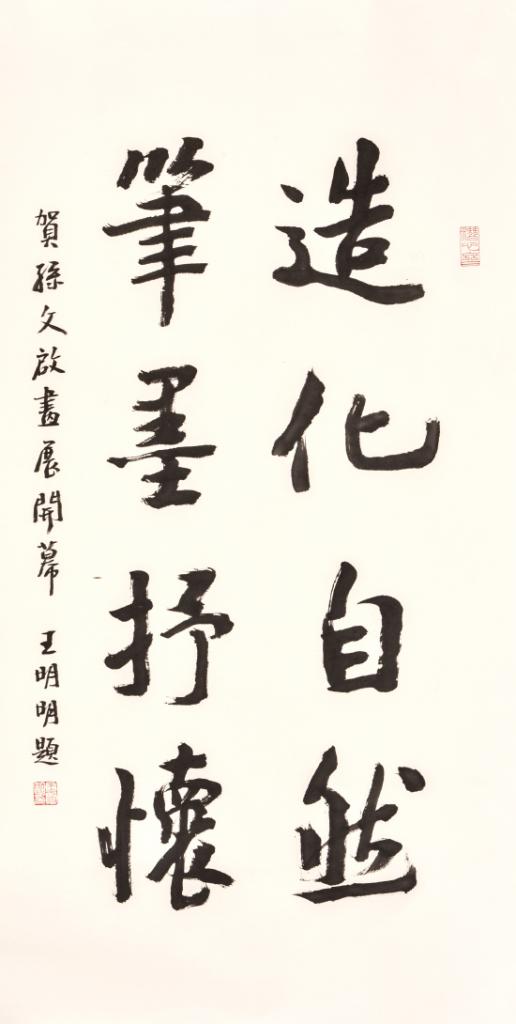 造化自然
筆墨抒懷
賀孫文啟畫展開幕 王明明題